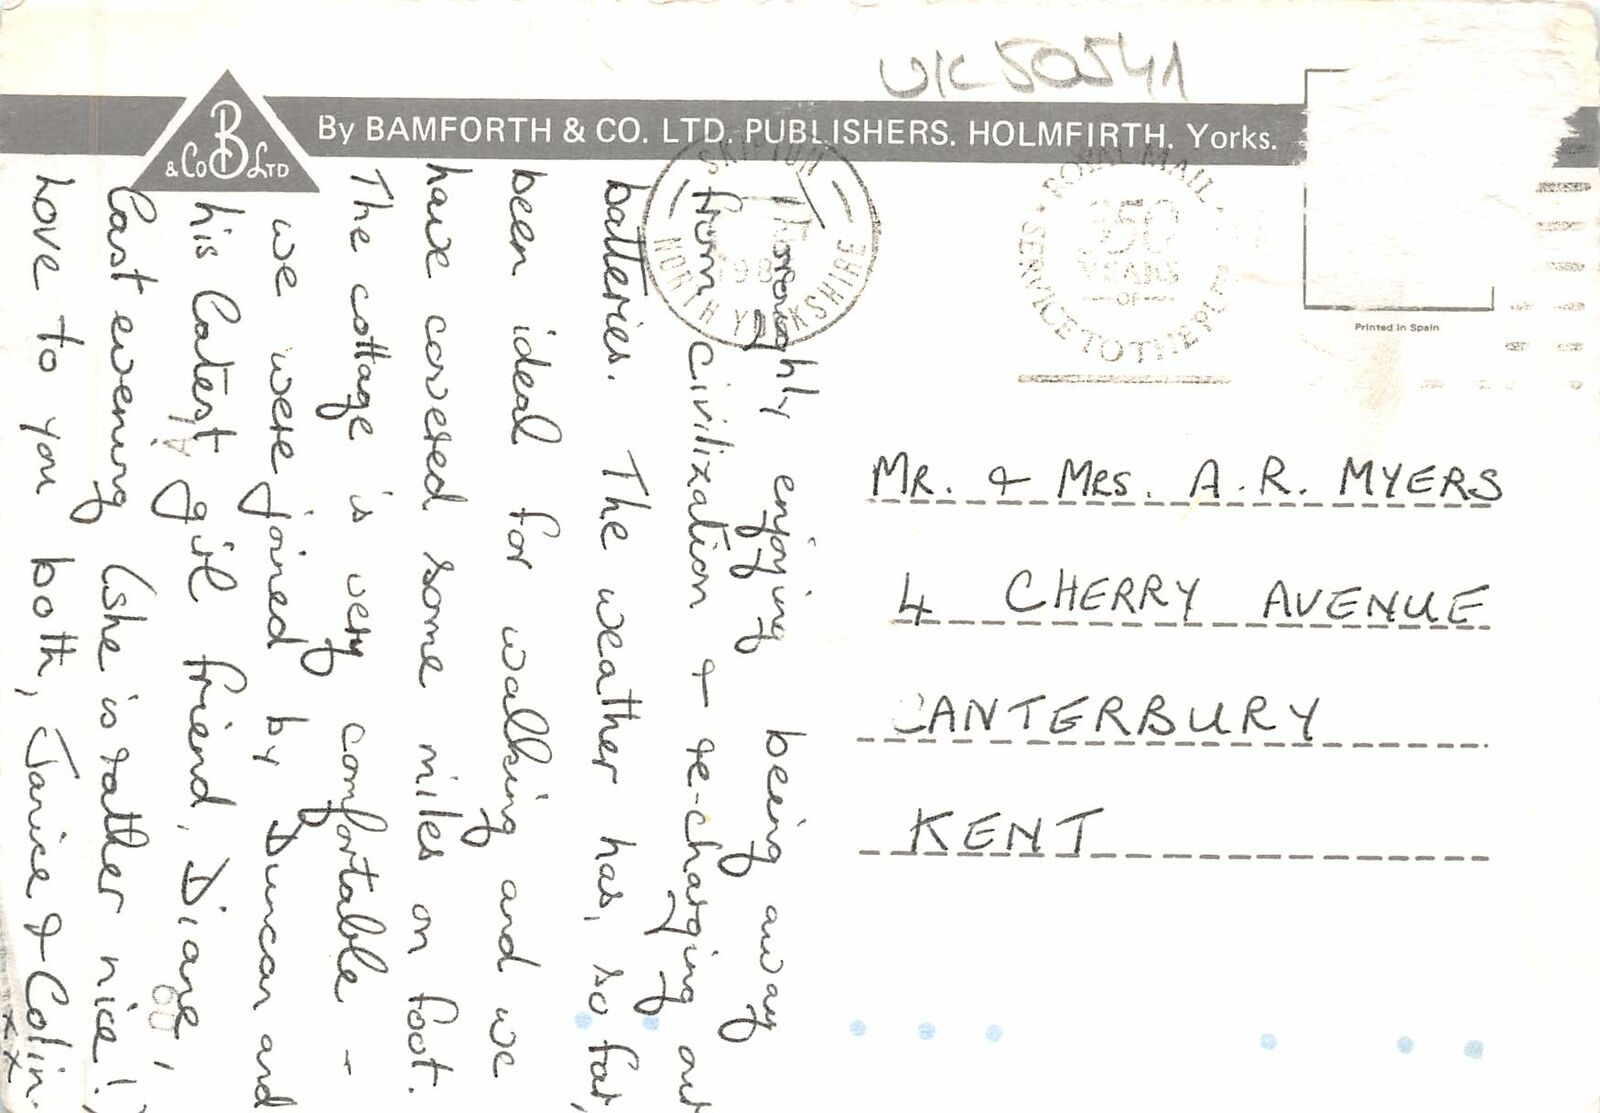 UK50541
By BAMFORTH & CO. LTD. PUBLISHERS. HOLMFIRTH. Yorks.
B
& Co Ltd
SKIPTON
NORTH YORKSHIRE
ROYAL MAIL
350
YEARS
OF
SERVICE TO THE
Printed in Spain
Thoroughly enjoying being away
from civilization & re-charging our
batteries. The weather has, so far,
been ideal for walking and we
have covered some miles on foot.
The cottage is very comfortable -
we were joined by Duncan and
his latest girl friend, Diane,
last evening (she is rather nice!)
Love to you both, Janice & Colin.
xxx
MR. & MRS. A. R. MYERS
4 CHERRY AVENUE
CANTERBURY
KENT